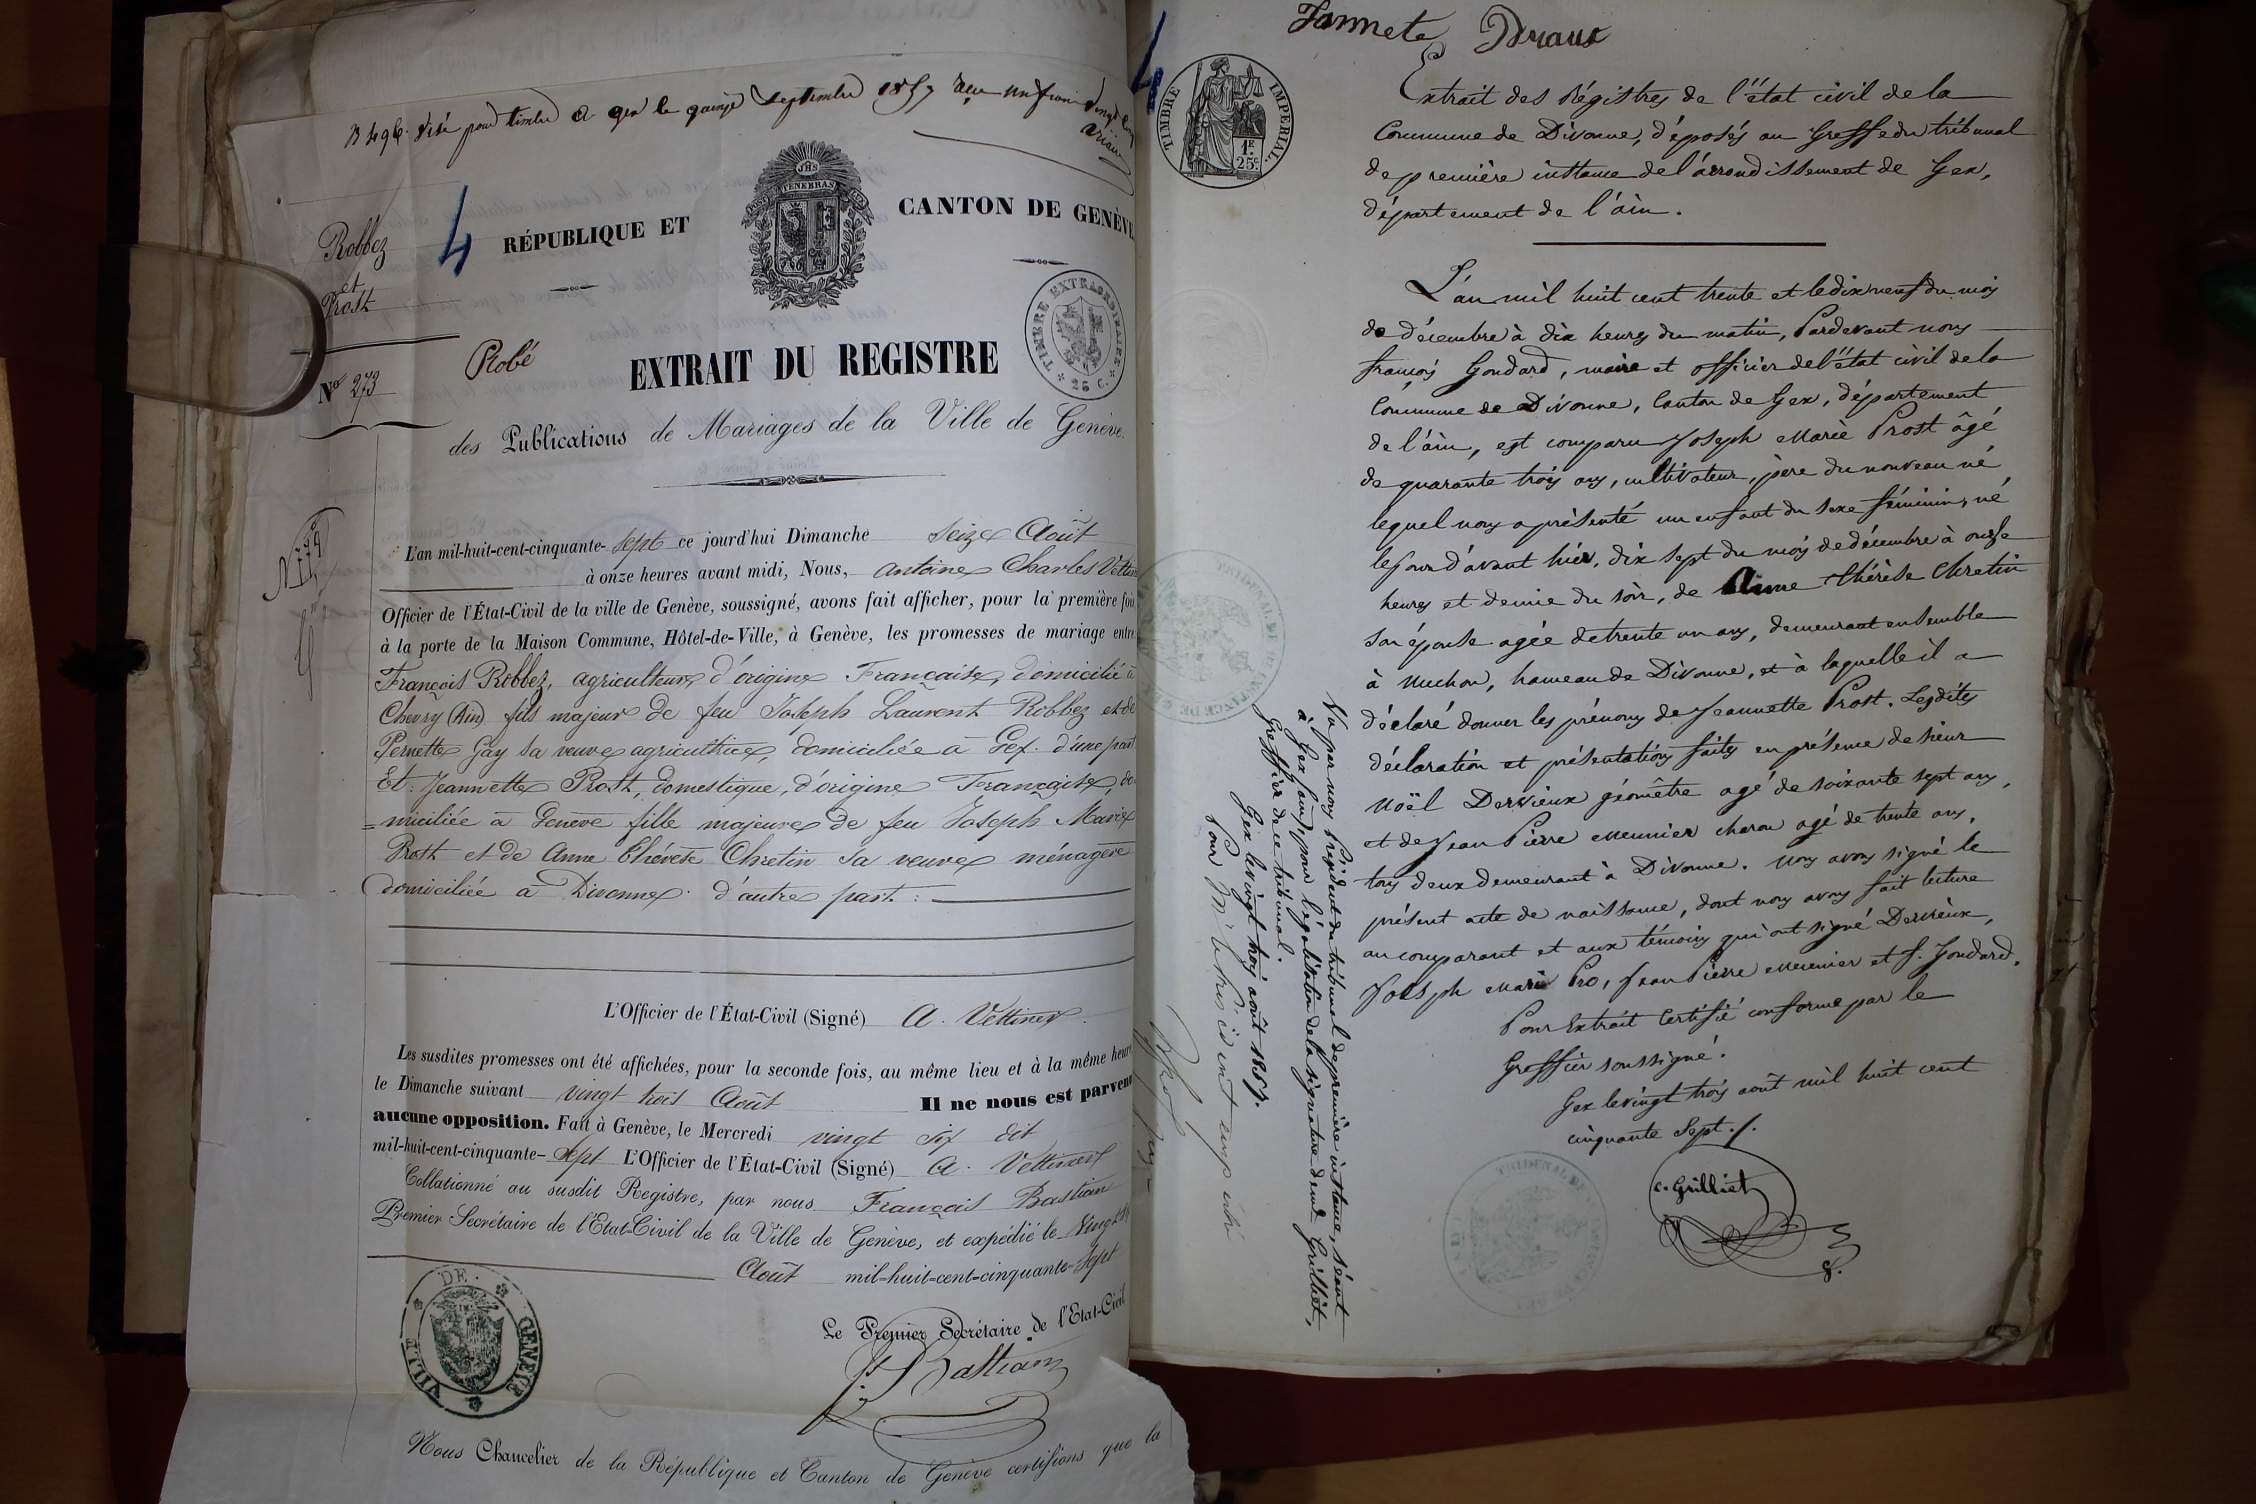 B 496. Visé pour timbre à gex le quinze septembre 1857 reçu un franc vingt cinq
4
Robbez
et
Prost
Nº 273
RÉPUBLIQUE ET
CANTON DE GENÈVE
JHS
TENEBRAS
TIMBRE EXTRAORDINAIRE
25 C.
Robé
EXTRAIT DU REGISTRE
des Publications de Mariages de la Ville de Genève.
L'an mil-huit-cent-cinquante-sept ce jourd'hui Dimanche seize Août
à onze heures avant midi, Nous, Antoine Charles Vettiner
Officier de l'État-Civil de la ville de Genève, soussigné, avons fait afficher, pour la première fois
à la porte de la Maison Commune, Hôtel-de-Ville, à Genève, les promesses de mariage entre
François Robbez, agriculteur, d'origine Française, domicilié à
Chevry (Ain) fils majeur de feu Joseph Laurent Robbez et de
Pernette Gay sa veuve agricultrice, domiciliée à Gex. d'une part
Et: Jeannette Prost, domestique, d'origine Française, do-
=miciliée à Genève fille majeure de feu Joseph Marie
Prost et de Anne Thérèse Chretin sa veuve ménagère
domiciliée à Divonne. d'autre part:
L'Officier de l'État-Civil (Signé) A. Vettiner.
Les susdites promesses ont été affichées, pour la seconde fois, au même lieu et à la même heure
le Dimanche suivant vingt trois Août Il ne nous est parvenu
aucune opposition. Fait à Genève, le Mercredi vingt six dit
mil-huit-cent-cinquante-sept L'Officier de l'État-Civil (Signé) A. Vettiner
Collationné au susdit Registre, par nous François Bastian
Premier Secrétaire de l'État-Civil de la Ville de Genève, et expédié le Vingt
Août mil-huit-cent-cinquante-sept
Le Premier Secrétaire de l'Etat-Civil
F. Bastian
VILLE DE GENEVE
Nous Chancelier de la République et Canton de Genève certifions que la
4
Jannete Draux
TIMBRE IMPERIAL
1F.
25C.
Extrait des Régistres de l'état civil de la
Commune de Divonne, déposés au Greffe du tribunal
de première instance de l'arrondissement de Gex,
département de l'ain.
L'an mil huit cent trente et le dix neuf du mois
de décembre à dix heures du matin, Pardevant nous
françois Goudard, maire et officier de l'état civil de la
Commune de Divonne, Canton de Gex, département
de l'ain, est comparu Joseph Marie Prost âgé
de quarante trois ans, cultivateur, père du nouveau né
lequel nous a présenté un enfant du sexe féminin, né
le jour d'avant hier, dix sept du mois de décembre à onze
heures et demie du soir, de Anne thérèse Chretin
son épouse agée de trente un ans, demeurant ensemble
à Muchon, hameau de Divonne, et à laquelle il a
déclaré donner les prénoms de Jeannette Prost. Lesdites
déclaration et présentation faites en présence de sieur
Noël Dervieux géomêtre agé de soixante sept ans,
et de Jean Pierre Meunier charon agé de trente ans,
tous deux demeurant à Divonne. Nous avons signé le
présent acte de naissance, dont nous avons fait lecture
au comparant et aux témoins qui ont signé Dervieux,
Joseph Marie Pro, Jean Pierre Meunier et f. Goudard.
Pour Extrait Certifié conforme par le
Greffier soussigné.
Gex le vingt trois août mil huit cent
cinquante Sept.
C. Grilliet
Vu par nous Président du tribunal de première instance, séant
à Gex (ain), pour légalisation de la signature de Mr Grilliet,
Greffier de ce tribunal.
Gex le vingt trois août 1857.
Pour Mr le Président empêché